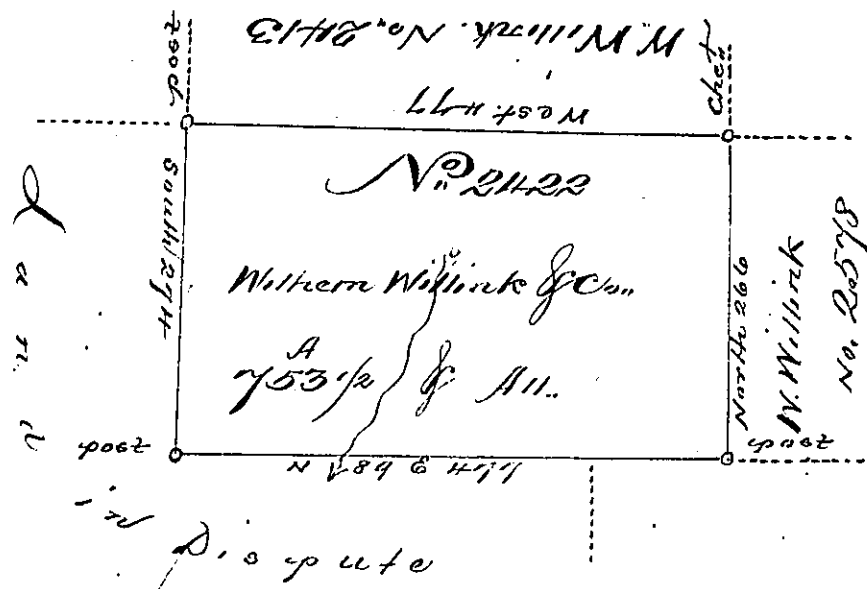 W. Willink. No. 2413
post
Chest
West 477
No. 2422
South 274
Wilhem Willink & Co..
A
753 1/2 & All..
North 266
W. Willink
No. 2578
post
post
N 89 E 477
Land
in
Dispute